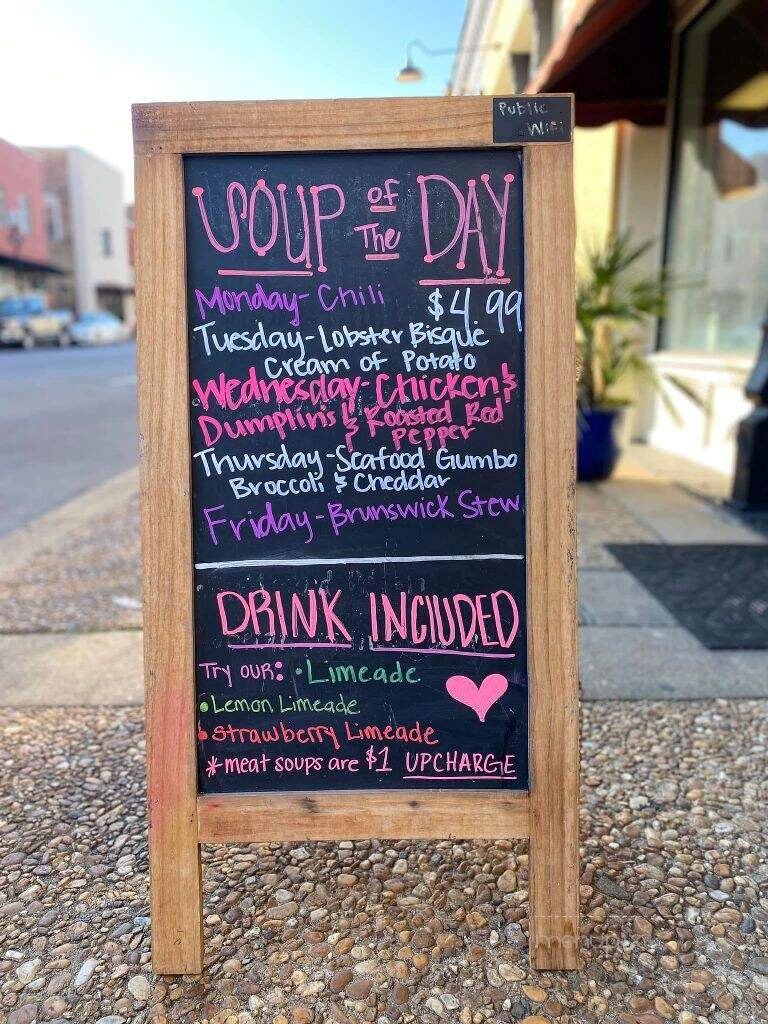 Public
WiFi
SOUP of The DAY
Monday - Chili $4.99
Tuesday - Lobster Bisque
Cream of Potato
Wednesday - Chicken &
Dumplin's & Roasted Red
Pepper
Thursday - Seafood Gumbo
Broccoli & Cheddar
Friday - Brunswick Stew
DRINK INCLUDED
Try our: • Limeade
• Lemon Limeade
• Strawberry Limeade
* meat soups are $1 UPCHARGE